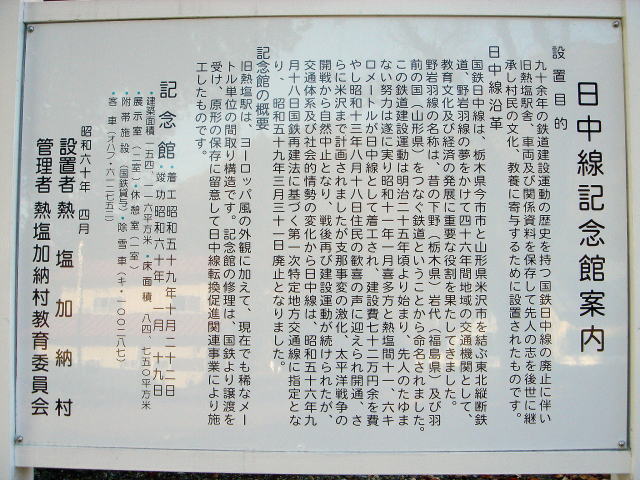 日中線記念館案内
設置目的
九十余年の鉄道建設運動の歴史を持つ国鉄日中線の廃止に伴い
旧熱塩駅舎、車両及び関係資料を保存して先人の志を後世に継
承し村民の文化、教養に寄与するために設置されたものです。
日中線沿革
国鉄日中線は、栃木県今市市と山形県米沢市を結ぶ東北縦断鉄
道、野岩羽線の夢をかけて四十六年間地域の交通機関として、
教育文化及び経済の発展に重要な役割を果たしてきました。
野岩羽線の名称は、昔の下野（栃木県）岩代（福島県）及び羽
前の国（山形県）をつなぐ鉄道ということから命名されました。
この鉄道建設運動は明治二十五年頃より始まり、先人のたゆま
ない努力は遂に実り昭和十一年一月喜多方と熱塩間十一、六キ
ロメートルが日中線として着工され、建設費七十二万円余を費
やし昭和十三年八月十八日住民の歓喜の声に迎えられ開通、さ
らに米沢まで計画されましたが支那事変の激化、太平洋戦争の
開戦から自然中止となり、戦後再び建設運動が続けられたが、
交通体系及び社会的情勢の変化から日中線は、昭和五十六年九
月十八日国鉄再建法に基づく第一次特定地方交通線に指定とな
り、昭和五十九年三月三十一日廃止となりました。
記念館の概要
旧熱塩駅は、ヨーロッパ風の外観に加えて、現在でも稀なメー
トル単位の間取り構造です。記念館の修理は、国鉄より譲渡を
受け、原形の保存に留意して日中線転換促進関連事業により施
工したものです。
記念館・着工 昭和五十九年十月二十二日
・竣功 昭和六十年 一月 十九日
・建築面積 一五四、一一六平方米 ・床面積 八四、七五〇平方米
・展示室（二室）・休憩室（一室）
・附帯施設（国鉄貸与）・除雪車（キ・一〇〇二八七）
・客車（オハフ・六一二七五二）
昭和六十年 四月
設置者 熱塩加納村
管理者 熱塩加納村教育委員会